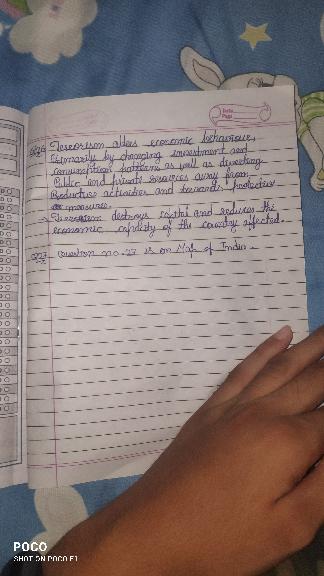 Date
Page
Terrorism alters economic behaviour,
Primarily by changing investment and
consumption patterns as well as diverting
Public and private resources away from
Productive activities and towards protective
measures.
→ Terrorism destroys capital and reduces the
economic capacity of the country affected.
question no. 27 is on Map of India -
POCO
SHOT ON POCO F1